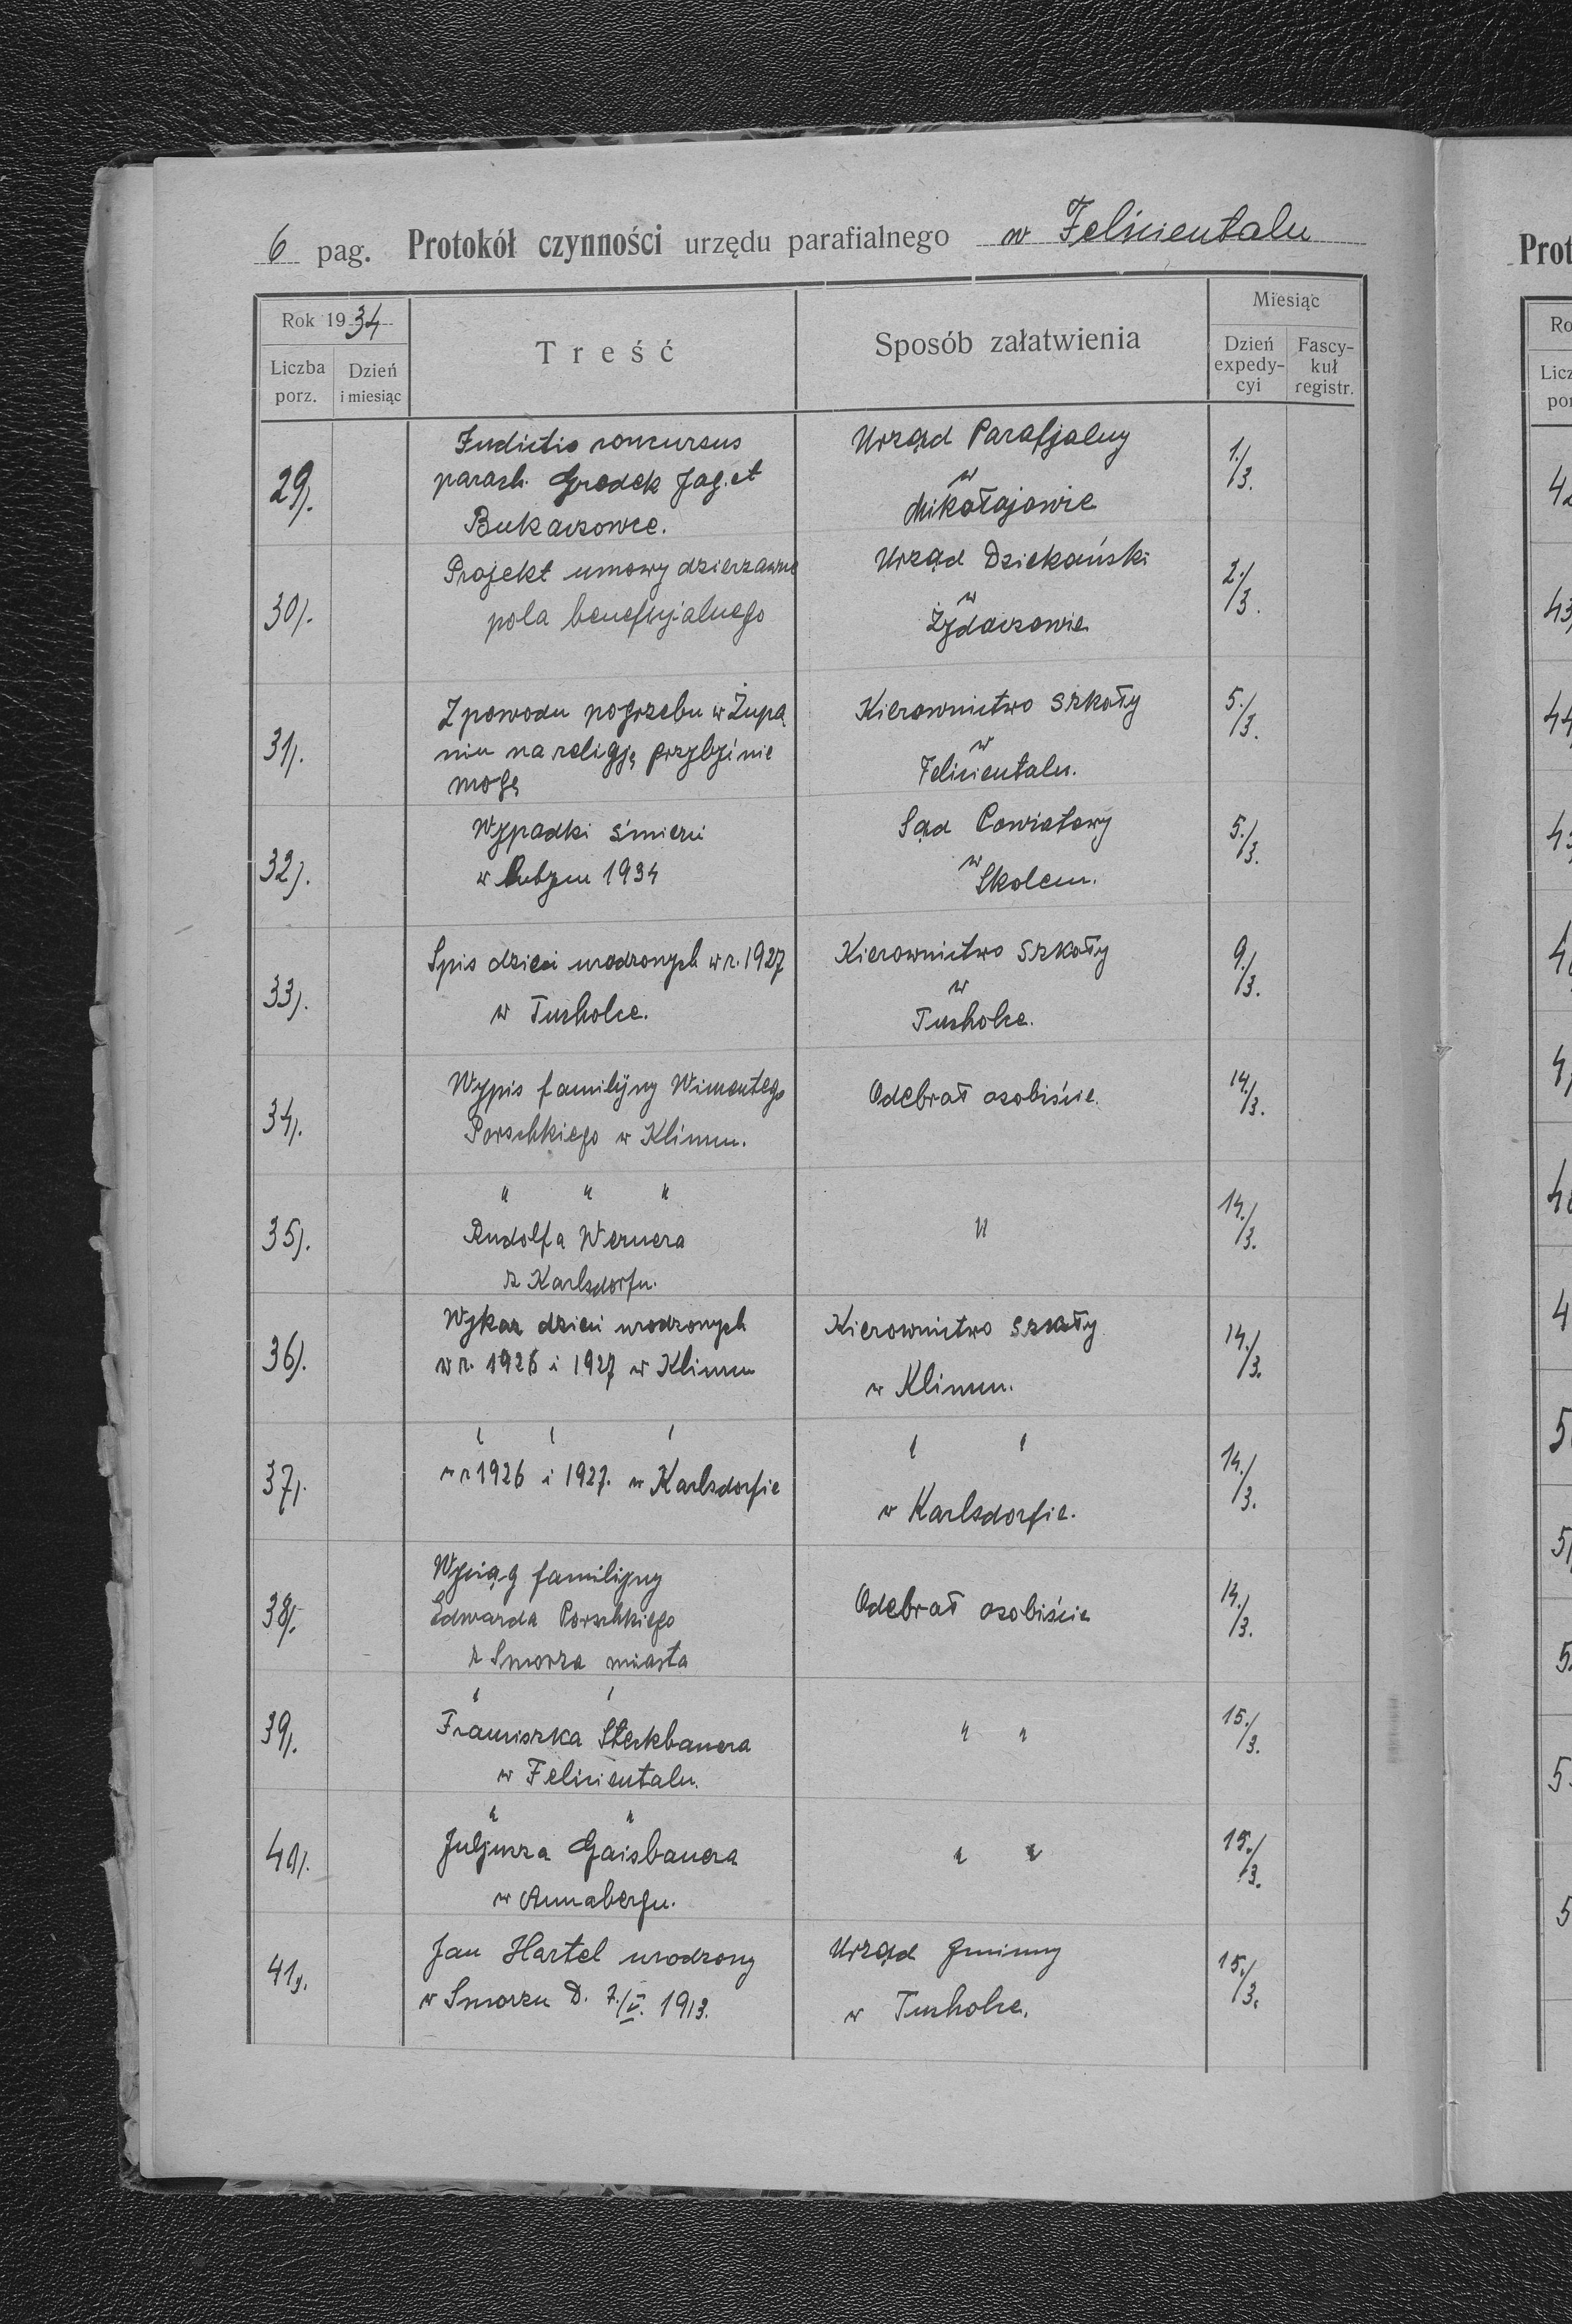 6 pag. Protokół czynności urzędu parafialnego w Felicientalu
Rok 1934
Liczba porz.
Dzień i miesiąc
Treść
Sposób załatwienia
Miesiąc
Dzień expedy-cyi
Fascy-kuł registr.
29). Indictio concursus Urząd Parafjalny 1./3.
paroch. Gródek Jag. et w
Bukaczowce. Mikołajowie
30). Projekt umowy dzierżawne Urząd Dziekański 2./3.
pola beneficjalnego w
Żydaczowie
31). Z powodu pogrzebu w Żupa Kierownictwo szkoły 5./3.
niu na religję przybyć nie w
mogę Felicientalu.
32). Wypadki śmierci Sąd Powiatowy 5./3.
w lutym 1934 w Skolem.
33). Spis dzieci urodzonych w r. 1927 Kierownictwo szkoły 9./3.
w Tucholce. w
Tucholce.
34). Wypis familijny Wincentego Odebrał osobiście. 14./3.
Porschkiego w Klimcu.
35). " " " " 14./3.
Rudolfa Wernera
z Karlsdorfu.
36). Wykaz dzieci urodzonych Kierownictwo szkoły 14./3.
w r. 1926 i 1927 w Klimcu w Klimcu.
37). " " " " " 14./3.
w r 1926 i 1927. w Karlsdorfie w Karlsdorfie.
38). Wyciąg familijny Odebrał osobiście 14./3.
Edwarda Porschkiego
z Smorza miasta
39). " " " " 15./3.
Franciszka Sterkbauera
w Felicientalu.
40). " " " " 15./3.
Juljusza Gaisbauera
w Annabergu.
41). Jan Hartel urodzony Urząd gminny 15./3.
w Smorzu D. 7./V. 1913. w Tucholce.
Prot